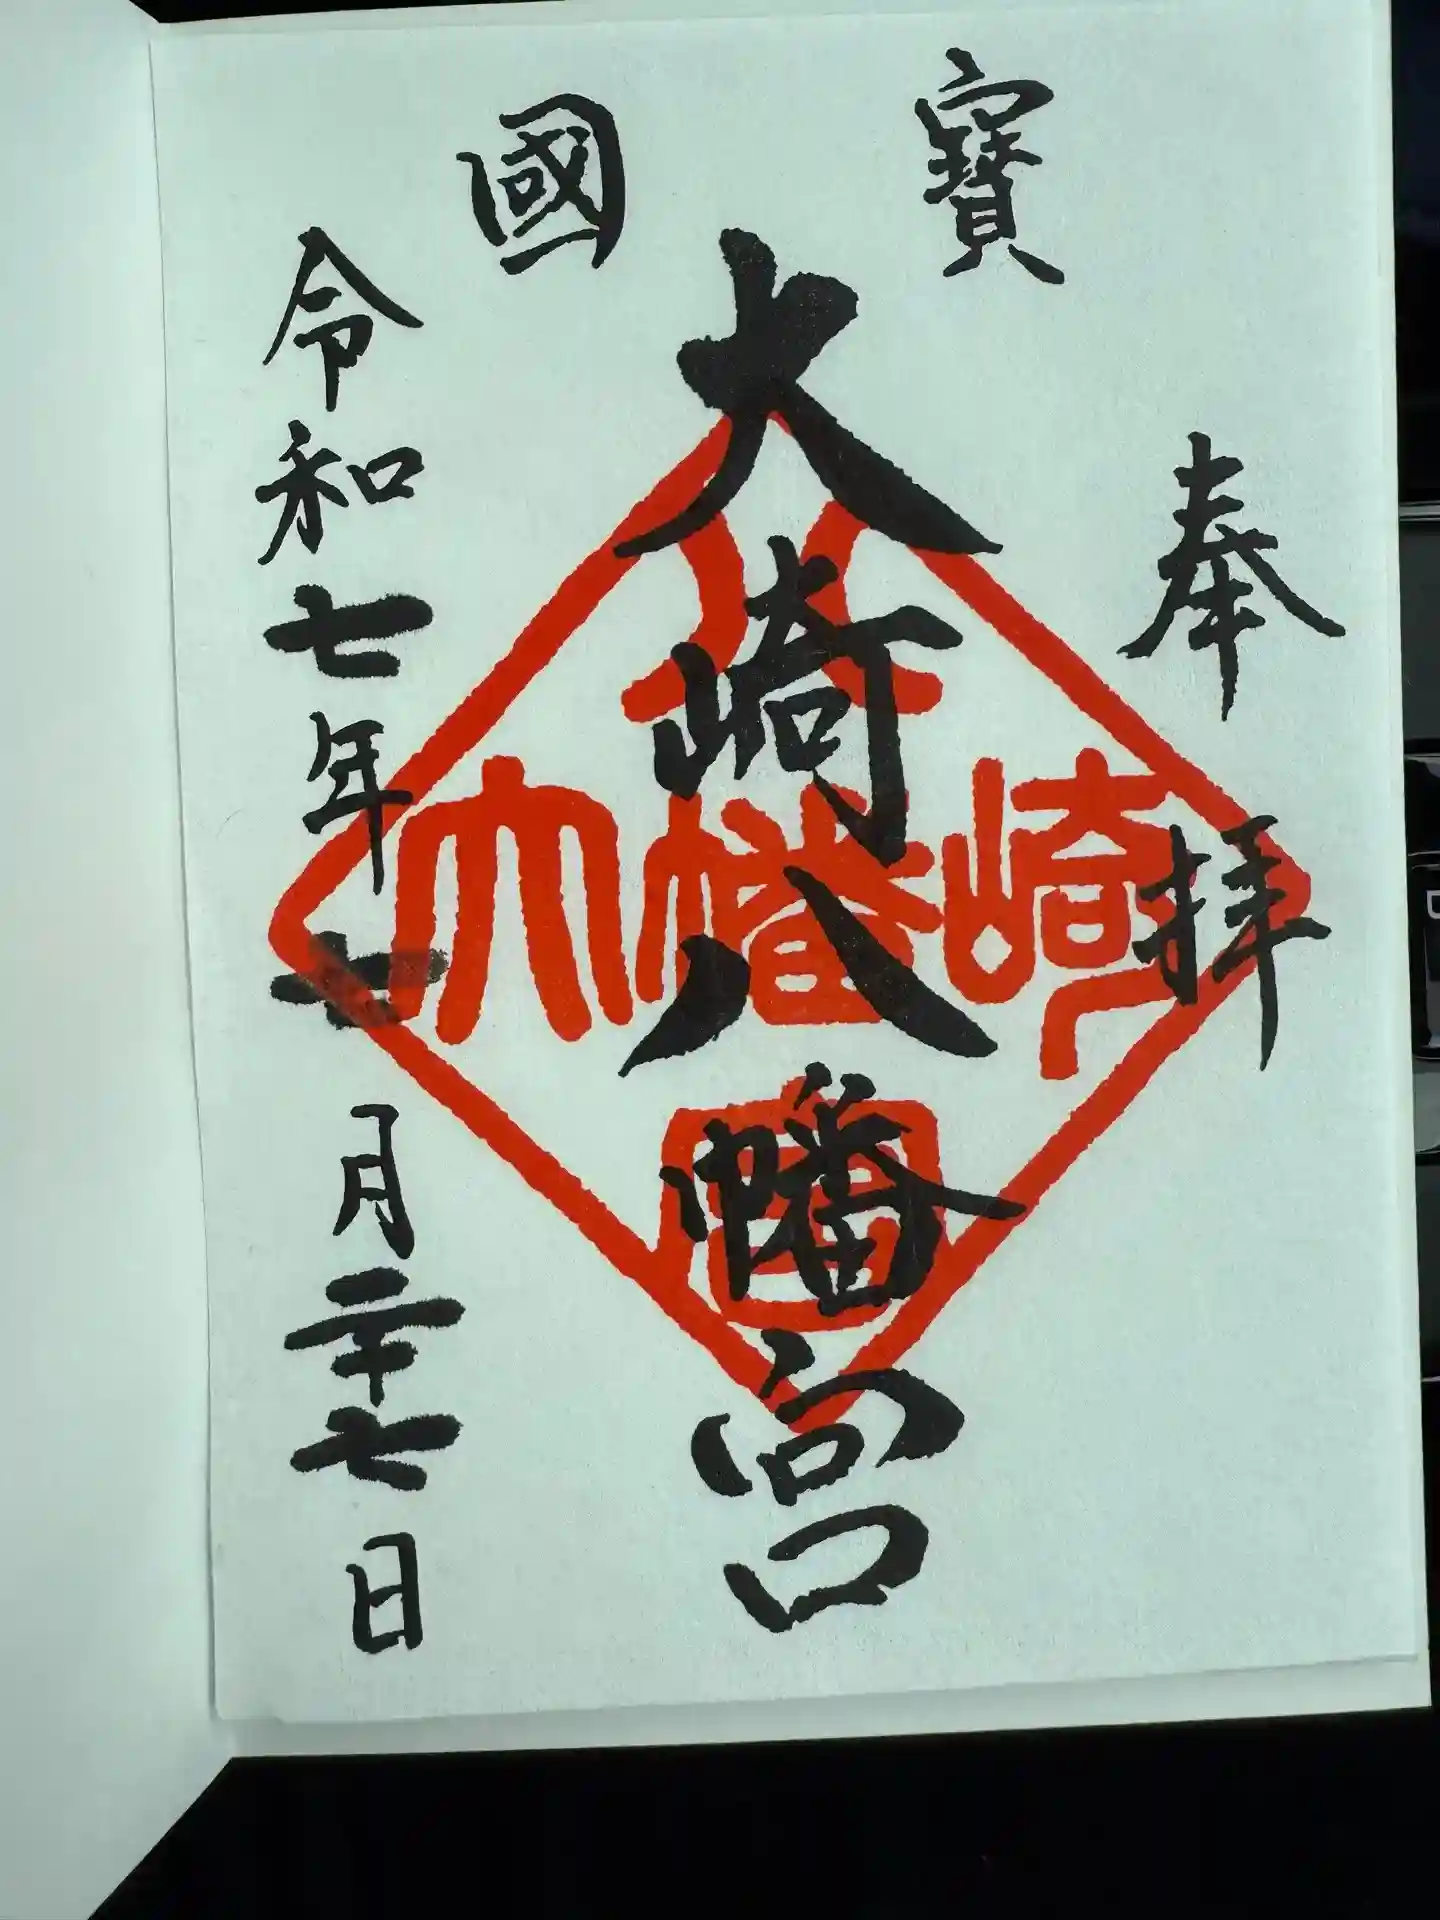 國寶
奉拝
大崎八幡宮
令和七年七月二十七日
八
大幡崎
宮